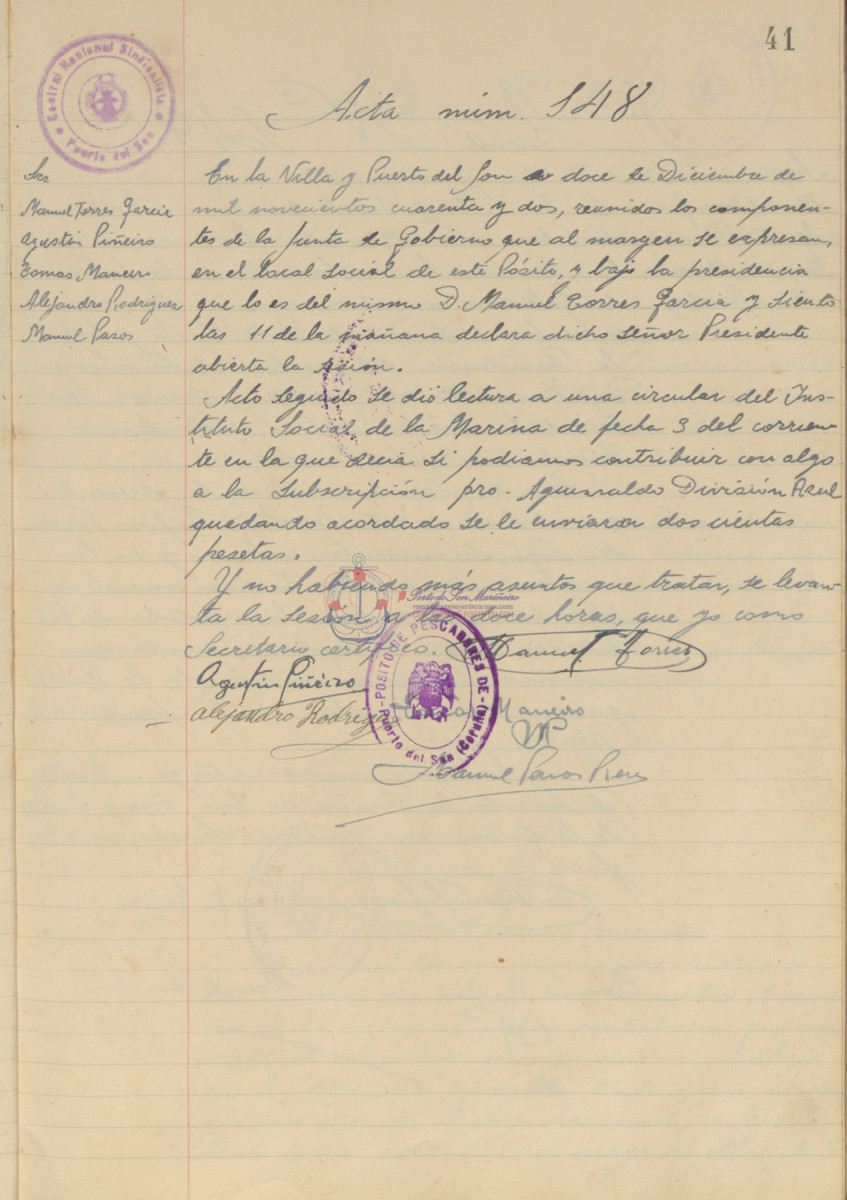 41
Central Nacional Sindicalista
Puerto del Son
Acta núm. 148
Srs.
Manuel Torres García
Agustín Piñeiro
Tomas Maneiro
Alejandro Rodriguez
Manuel Pasos
En la Villa y Puerto del Son a doce de Diciembre de
mil novecientos cuarenta y dos, reunidos los componen-
tes de la Junta de Gobierno que al margen se expresan,
en el local social de este Pósito, y bajo la presidencia
que lo es del mismo D. Manuel Torres García y siento
las 11 de la mañana declara dicho señor Presidente
abierta la sesión.
Acto seguido se dió lectura a una circular del Ins-
tituto Social de la Marina de fecha 3 del corrien-
te en la que decia si podiamos contribuir con algo
a la subscripción pro-Aguinaldo División Azul
quedando acordado se le enviaran dos cientas
pesetas.
Y no habiendo más asuntos que tratar, se levan-
ta la sesión a las doce horas, que yo como
Secretario certifico. Manuel Torres
Porto do Son Mariñeiro
Agustín Piñeiro
Alejandro Rodrigue
Maneiro
Manuel Pasos
POSITO DE PESCADORES DE
Puerto del Son (Coruña)